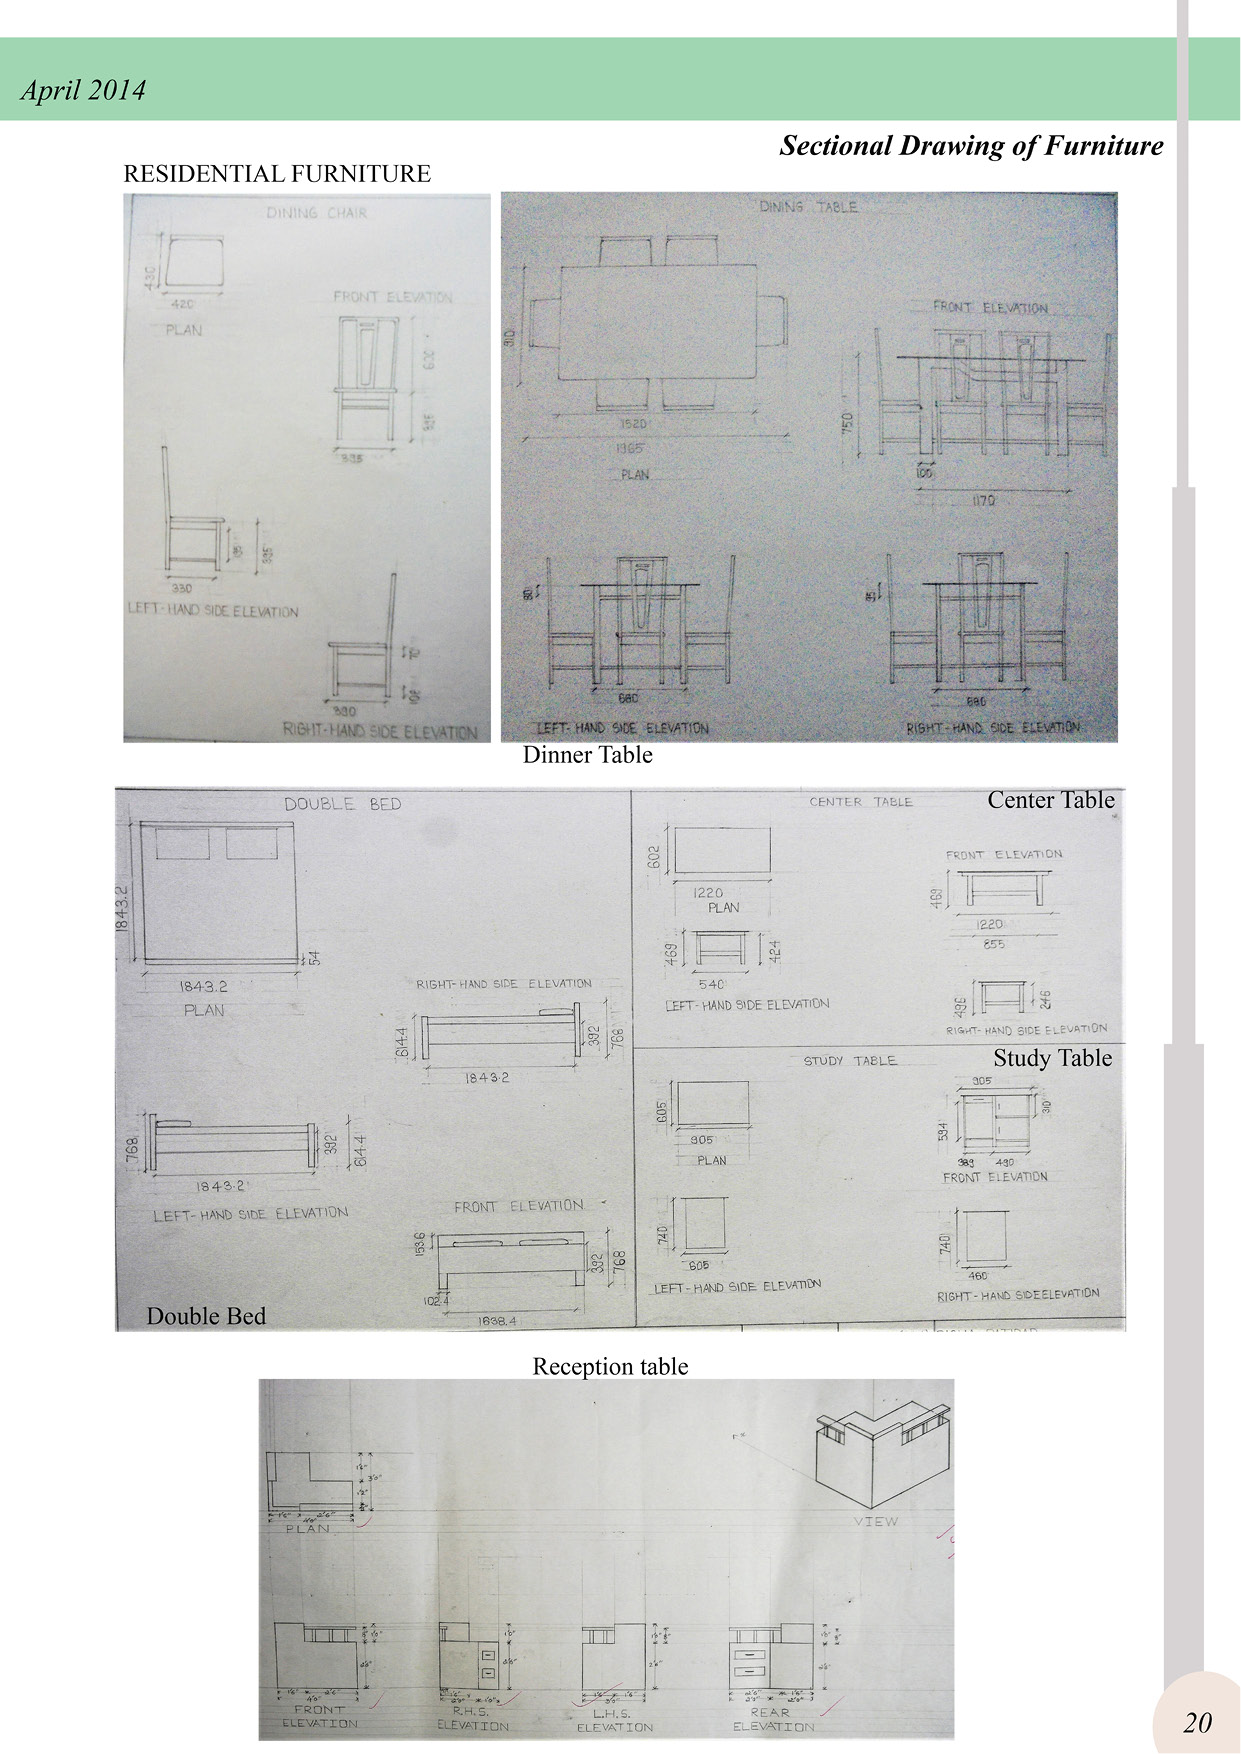 April 2014
Sectional Drawing of Furniture
RESIDENTIAL FURNITURE
DINING CHAIR
430
420
PLAN
FRONT ELEVATION
395
330
395
LEFT-HAND SIDE ELEVATION
70
330
RIGHT-HAND SIDE ELEVATION
DINING TABLE
910
1520
1965
PLAN
FRONT ELEVATION
750
100
1170
680
LEFT-HAND SIDE ELEVATION
95
680
RIGHT-HAND SIDE ELEVATION
Dinner Table
DOUBLE BED
1843.2
54
1843.2
PLAN
RIGHT-HAND SIDE ELEVATION
614.4
392
768
1843.2
768
392
614.4
1843.2
LEFT-HAND SIDE ELEVATION
FRONT ELEVATION
153.6
392
768
102.4
1638.4
Double Bed
CENTER TABLE
Center Table
602
1220
PLAN
FRONT ELEVATION
469
1220
855
469
424
540
LEFT-HAND SIDE ELEVATION
496
246
RIGHT-HAND SIDE ELEVATION
STUDY TABLE
Study Table
605
905
PLAN
905
310
594
389
490
FRONT ELEVATION
740
605
LEFT-HAND SIDE ELEVATION
740
460
RIGHT-HAND SIDE ELEVATION
Reception table
1'6"
3'0"
1'6"
2'6"
4'0"
PLAN
VIEW
1'0"
1'6"
2'6"
4'0"
FRONT
ELEVATION
1'0"
2'0"
1'0"
R.H.S.
ELEVATION
2'6"
1'6"
1'6"
3'0"
L.H.S.
ELEVATION
2'6"
1'6"
2'0"
2'0"
REAR
ELEVATION
20